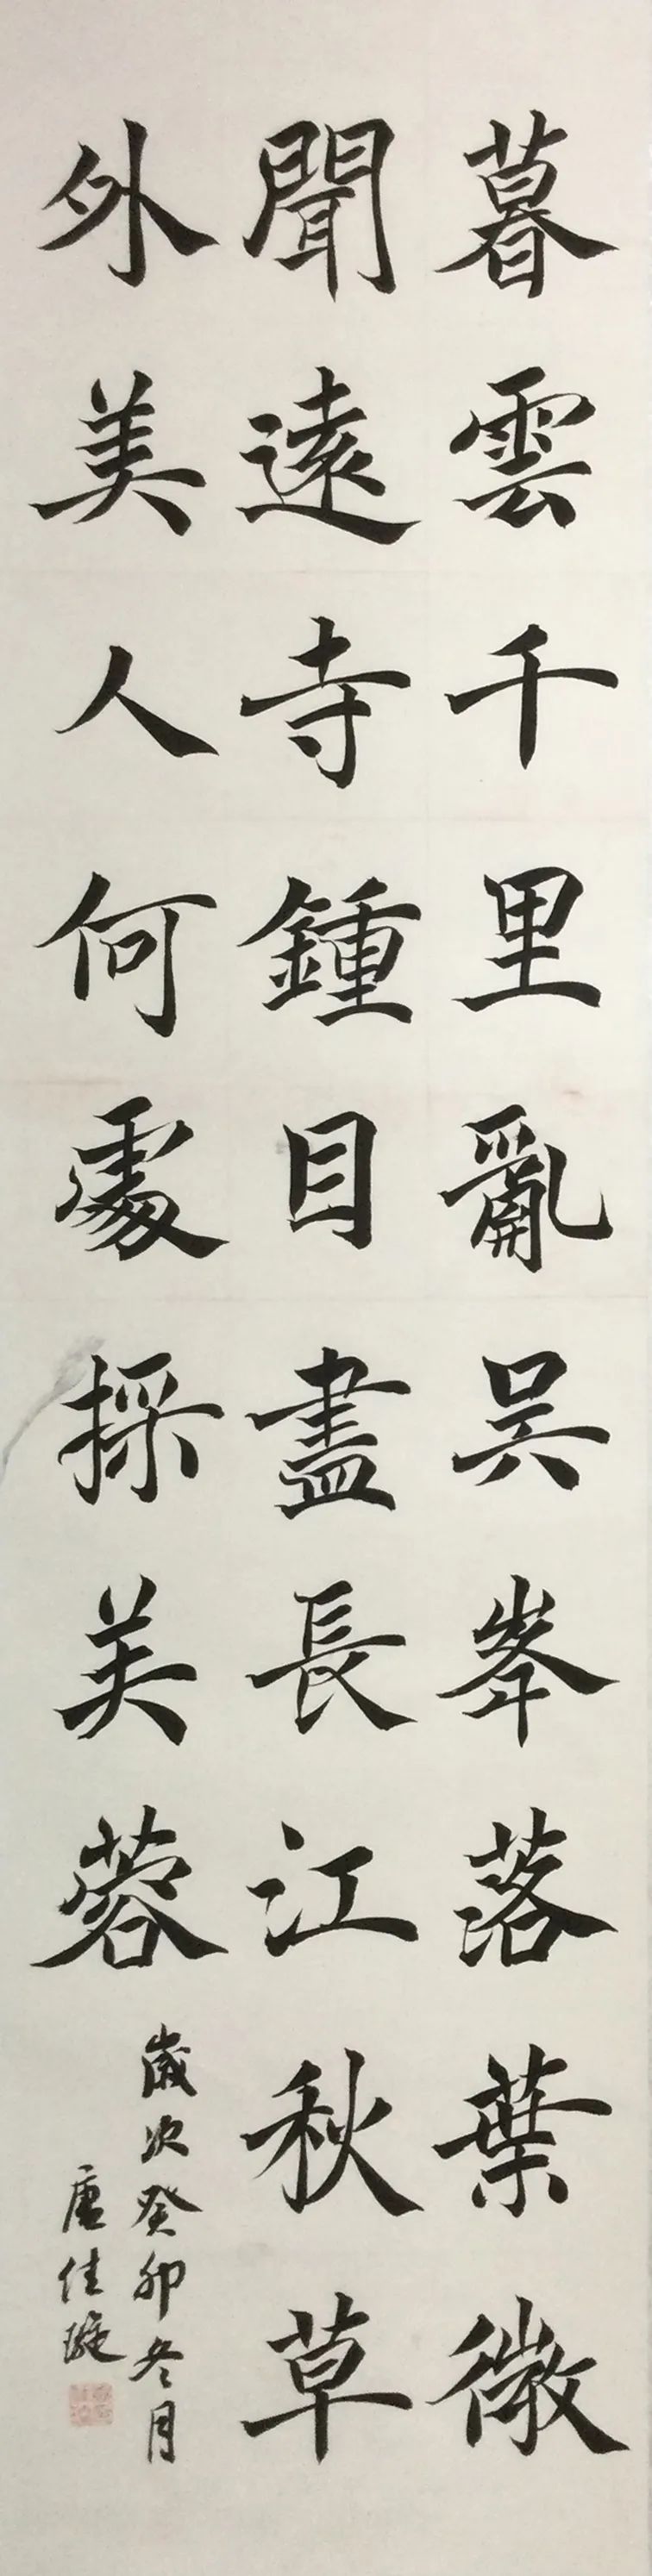 暮雲千里亂吳峯落葉微
聞遠寺鍾目盡長江秋草
外美人何處採芙蓉
歲次癸卯冬月
唐佳璇